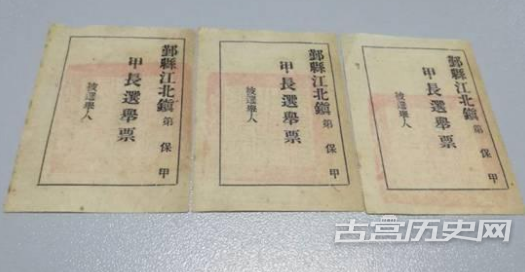 鄞縣江北鎮第 保 甲
甲長選舉票
被選舉人
鄞縣江北鎮第 保 甲
甲長選舉票
被選舉人
鄞縣江北鎮第 保 甲
甲長選舉票
被選舉人
古宫历史网